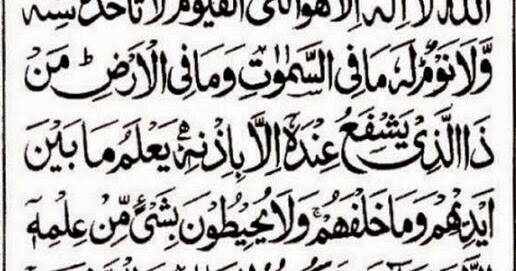 اللّٰهُ لَاۤ اِلٰهَ اِلَّا هُوَ الْحَیُّ الْقَیُّوْمُ لَا تَاْخُذُهٗ سِنَةٌ
وَّلَا نَوْمٌ لَهٗ مَا فِی السَّمٰوٰتِ وَمَا فِی الْاَرْضِ ؕ مَنْ
ذَا الَّذِیْ یَشْفَعُ عِنْدَهٗۤ اِلَّا بِاِذْنِهٖ ؕ یَعْلَمُ مَا بَیْنَ
اَیْدِیْهِمْ وَمَا خَلْفَهُمْ ۚ وَلَا یُحِیْطُوْنَ بِشَیْءٍ مِّنْ عِلْمِهٖۤ